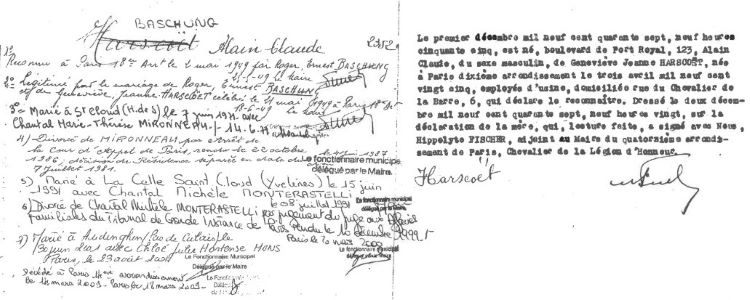 BASCHUNG
Harscoët Alain Claude
Reconnu à Paris 18e Arrt le 2 mai 1949 par Roger, Ernest BASCHUNG
2° Légitimé par le mariage de Roger, Ernest BASCHUNG
et de Geneviève Jeanne HARSCOET célébré le mai 1949 Paris
3° Marié à St Cloud (H.de S) le 7 juin 1971 avec
Chantal Marie-Thérèse MIRONNEAU
4) Divorcé de MIRONNEAU par arrêt de
la Cour d'appel de Paris, rendu le 2 octobre
1986, décision de résidence séparée en date du
7 juillet 1981.
Le fonctionnaire municipal
délégué par le Maire.
5) Marié à La Celle Saint Cloud (Yvelines) le 15 juin
1991 avec Chantal Michèle MONTERASTELLI
le 08 juillet 1991
6) Divorcé de Chantal Michèle MONTERASTELLI par jugement du juge aux Affaires
Familiales du Tribunal de Grande Instance de Paris rendu le 10 décembre 1999
Paris le 20 mars 2000
7) Marié à Audinghen/Pas de Calais le
30 juin 2001 avec Chloé Julie Hortense MONS
Paris, le 23 août 2001
Le Fonctionnaire Municipal
Délégué par le Maire
Décédé à Paris arrondissement
le 14 mars 2009 - Paris le 18 mars 2009.
Le premier décembre mil neuf cent quarante sept, neuf heures
cinquante cinq, est né, boulevard de Port Royal, 123, Alain
Claude, du sexe masculin, de Geneviève Jeanne HARSCOET, née
à Paris dixième arrondissement le trois avril mil neuf cent
vingt cinq, employée d'usine, domiciliée rue du Chevalier de
la Barre, 6, qui déclare le reconnaître. Dressé le deux décem-
bre mil neuf cent quarante sept, neuf heures vingt, sur la
déclaration de la mère, qui, lecture faite, a signé avec Nous,
Hippolyte FISCHER, adjoint au Maire du quatorzième arrondis-
sement de Paris, Chevalier de la Légion d'Honneur.
Harscoët